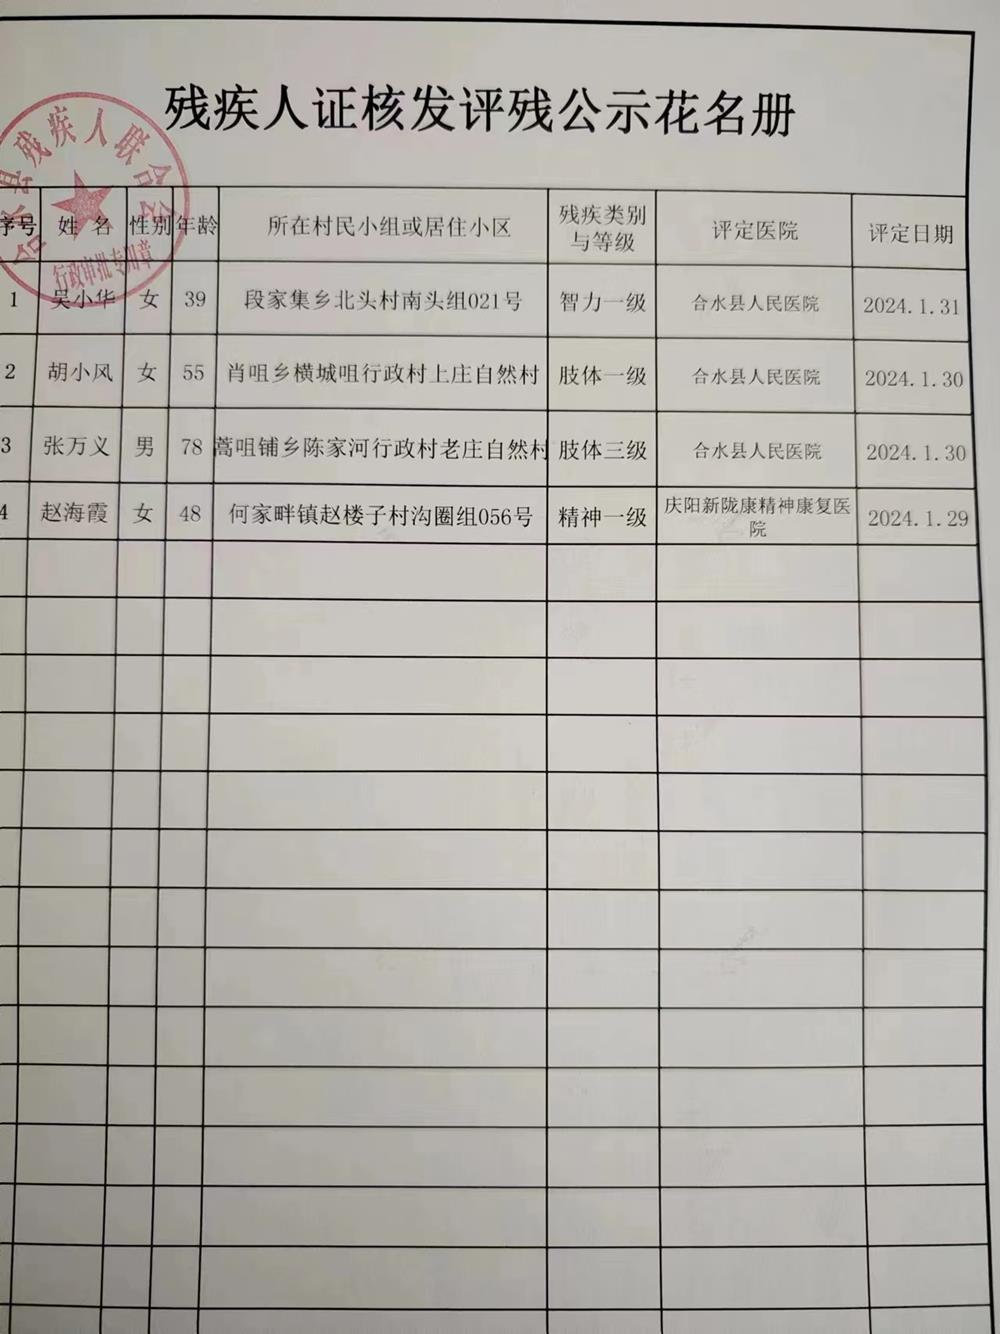 残疾人证核发评残公示花名册
合水县残疾人联合会
行政审批专用章
序号 姓 名 性别 年龄 所在村民小组或居住小区 残疾类别与等级 评定医院 评定日期
1 吴小华 女 39 段家集乡北头村南头组021号 智力一级 合水县人民医院 2024.1.31
2 胡小风 女 55 肖咀乡横城咀行政村上庄自然村 肢体一级 合水县人民医院 2024.1.30
3 张万义 男 78 蒿咀铺乡陈家河行政村老庄自然村 肢体三级 合水县人民医院 2024.1.30
4 赵海霞 女 48 何家畔镇赵楼子村沟圈组056号 精神一级 庆阳新陇康精神康复医院 2024.1.29